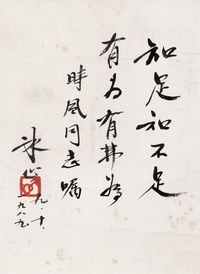 知足知不足
有为有弗為
時风同志嘱
冰心
九、十、
一九八九